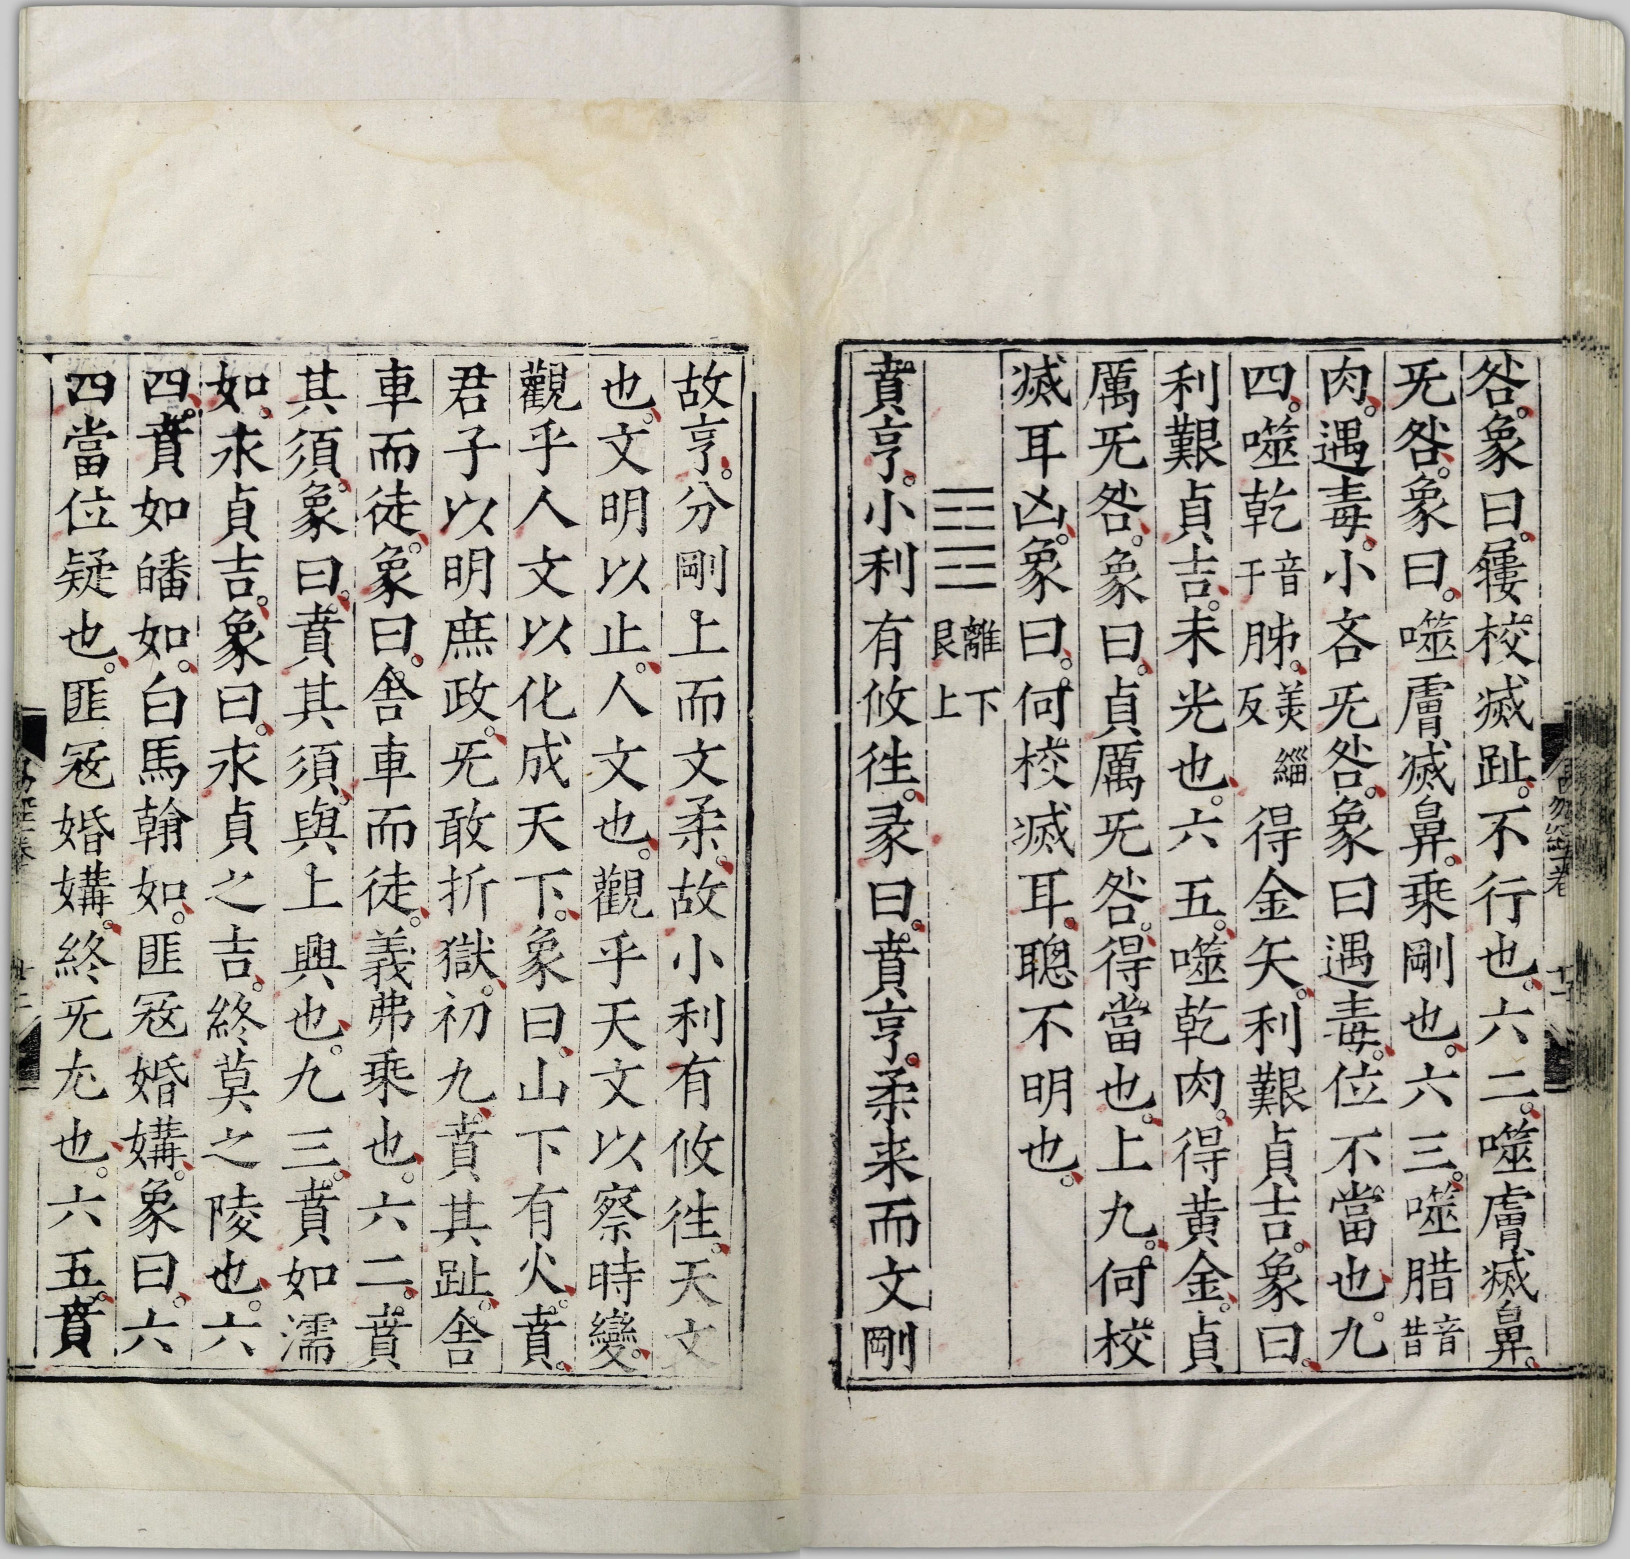 咎。象曰。屨校滅趾。不行也。六二。噬膚滅鼻。
旡咎。象曰。噬膚滅鼻。乗剛也。六三。噬腊音昔
肉。遇毒。小吝旡咎。象曰遇毒。位不當也。九
四。噬乾音干胏。美緇反得金矢。利艱貞吉。象曰。
利艱貞吉。未光也。六五。噬乾肉。得黄金。貞
厲旡咎。象曰。貞厲旡咎。得當也。上九。何校
滅耳凶。象曰。何校滅耳。聰不明也。
䷕離下艮上
賁亨。小利有攸徃。彖曰。賁亨。柔来而文剛
故亨。分剛。上而文柔。故小利有攸徃。天文
也。文明以止。人文也。觀乎天文以察時變。
觀乎人文以化成天下。象曰。山下有火。賁。
君子以明庶政。旡敢折獄。初九。賁其趾。舎
車而徒。象曰。舎車而徒。義弗乗也。六二。賁
其須。象曰。賁其須。與上興也。九三。賁如濡
如。永貞吉。象曰。永貞之吉。終莫之陵也。六
四。賁如皤如。白馬翰如。匪宼婚媾。象曰。六
四當位疑也。匪宼婚媾。終旡尤也。六五。賁